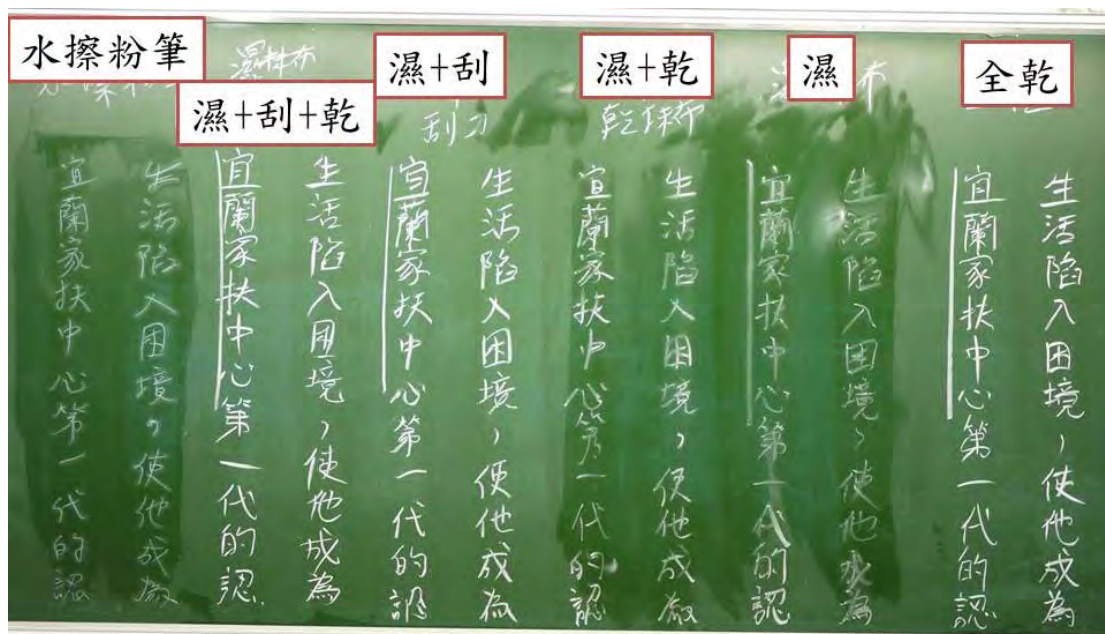 水擦粉筆
濕+刮+乾
濕+刮
濕+乾
濕
全乾
濕抹布
刮刀
乾抹布
布
生活陷入困境，使他成為
宜蘭家扶中心第一代的認
生活陷入困境，使他成為
宜蘭家扶中心第一代的認
生活陷入困境，使他成為
宜蘭家扶中心第一代的認
生活陷入困境，使他成為
宜蘭家扶中心第一代的認
生活陷入困境，使他成為
宜蘭家扶中心第一代的認
生活陷入困境，使他成為
宜蘭家扶中心第一代的認